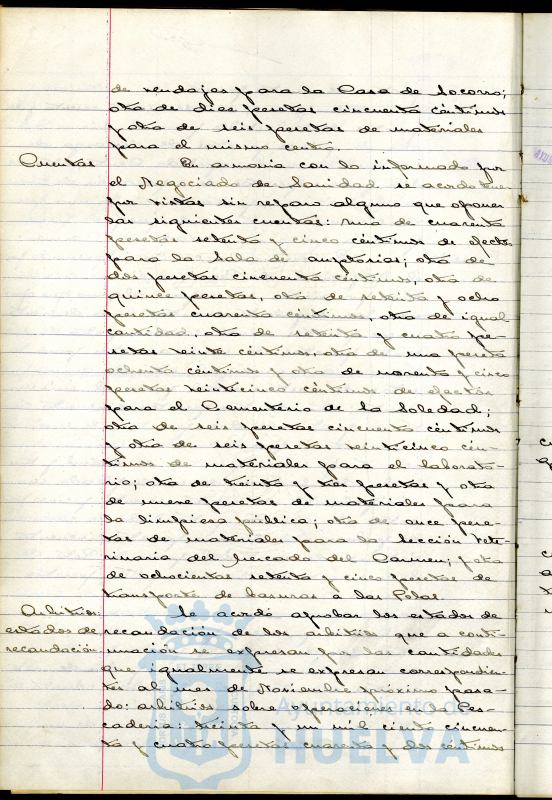 de vendajes para la Casa de Socorro;
otra de diez pesetas cincuenta céntimos
y otra de seis pesetas de materiales
para el mismo centro.
Cuentas
En armonía con lo informado por
el Negociado de Sanidad se acordó tener
por vistas sin reparo alguno que oponer
las siguientes cuentas: una de cuarenta
pesetas setenta y cinco céntimos de efectos
para la Sala de autopsias; otra de
dos pesetas cincuenta céntimos, otra de
quince pesetas, otra de setenta y ocho
pesetas cuarenta céntimos, otra de igual
cantidad, otra de setenta y cuatro pe-
setas veinte céntimos, otra de una peseta
ochenta céntimos y otra de noventa y cinco
pesetas veinticinco céntimos de efectos
para el Cementerio de la Soledad;
otra de seis pesetas cincuenta céntimos
y otra de seis pesetas veinticinco cén-
timos de materiales para el laborato-
rio; otra de treinta y tres pesetas y otra
de nueve pesetas de materiales para
la limpieza pública; otra de once pese-
tas de materiales para la sección vete-
rinaria del Mercado del Carmen; y otra
de ochocientas setenta y cinco pesetas de
transporte de basuras a las
Arbitrios:
estados de
recaudación
Se acordó aprobar los estados de
recaudación de los arbitrios que a conti-
nuación se expresan por las cantidades
que igualmente se expresan correspondien-
tes al mes de Noviembre próximo pasa-
do: arbitrios sobre operaciones en la Pes-
cadería: treinta y un mil ciento cincuen-
ta y cuatro pesetas cuarenta y dos céntimos
Ayuntamiento de
HUELVA